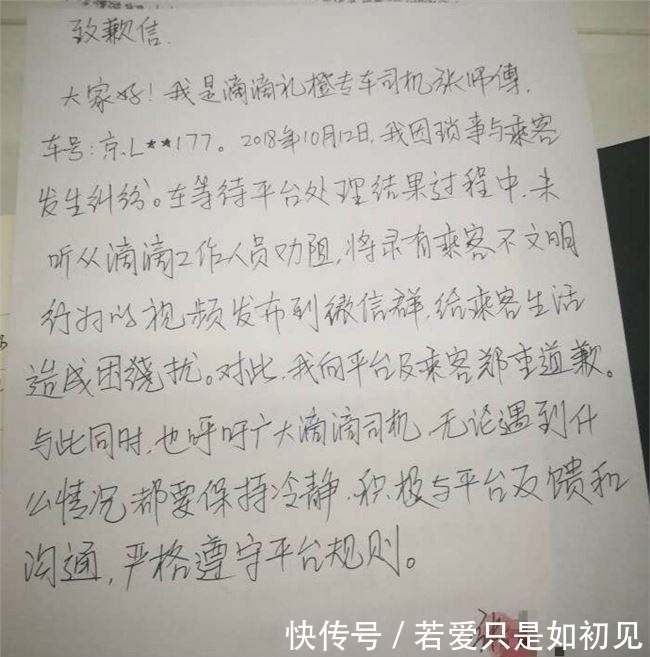 致歉信.
大家好！我是滴滴礼橙专车司机张师傅，
车号：京L**177。2018年10月12日，我因琐事与乘客
发生纠纷。在等待平台处理结果过程中，未
听从滴滴工作人员劝阻，将录有乘客不文明
行为的视频发布到微信群，给乘客生活
造成困绕扰。对此，我向平台及乘客郑重道歉。
与此同时，也呼吁广大滴滴司机，无论遇到什
么情况都要保持冷静，积极与平台反馈和
沟通，严格遵守平台规则。
张
快传号 / 若爱只是如初见